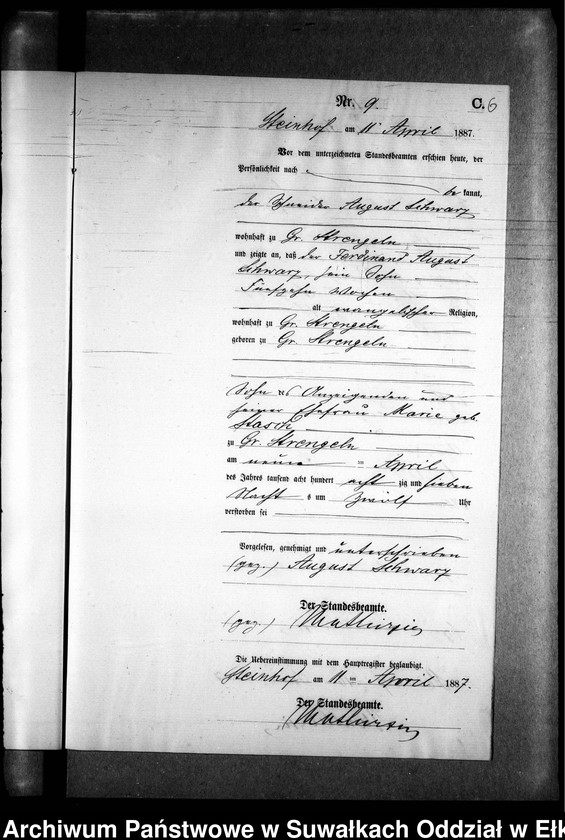 Nr. 9. C. 6
Steinhof am 11 April 1887.
Vor dem unterzeichneten Standesbeamten erschien heute, der
Persönlichkeit nach
be kannt,
der Schneider August Schwarz
wohnhaft zu Gr. Strengeln
und zeigte an, daß der Ferdinand August
Schwarz, sein Sohn
Fünfzehn Wochen
alt evangelischer Religion,
wohnhaft zu Gr. Strengeln
geboren zu Gr. Strengeln
Sohn des Anzeigenden und
seiner Ehefrau Marie geb.
Stasch
zu Gr. Strengeln
am neun ten April
des Jahres tausend acht hundert acht zig und sieben
Nacht s um Zwölf Uhr
verstorben sei
Vorgelesen, genehmigt und unterschrieben
(gez.) August Schwarz
Der Standesbeamte.
(gez.)
Die Uebereinstimmung mit dem Hauptregister beglaubigt.
Steinhof am 11 ten April 1887.
Der Standesbeamte.
Archiwum Państwowe w Suwałkach Oddział w Ełk